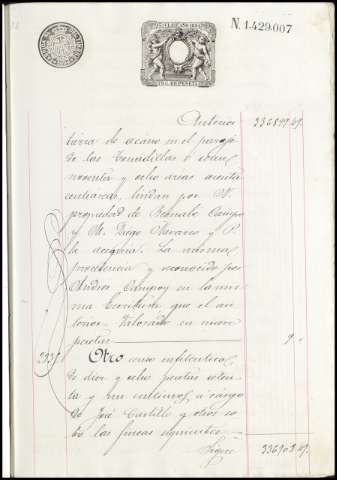 N. 1.429.007
Anterior 336899.49.
tierra de secano en el parage
de las Tenadillas o
noventa y ocho areas
centiareas, lindan por N.
propiedad de Bernabe Campoy
y M. Diego Navarro y P.
la acequia. La misma
procedencia y reconocido por
Andres Campoy en la mis
ma Escritura que el an
terior. Valorado en nueve
pesetas 9.
Otro censo enfiteutico
de diez y ocho pesetas
ta y un centimos, a cargo
de José Castillo y otros so
bre las fincas siguientes
Sigue 336908.49.